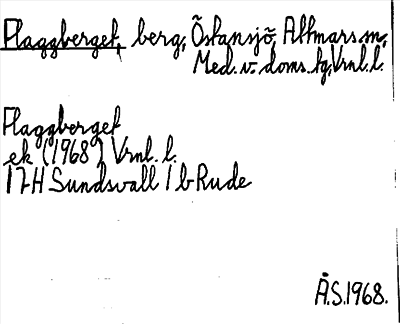 Flaggberget, berg, Östansjö, Attmars sn,
Med. v. doms. tg, Vrnl. l.
Flaggberget
ek (1968) Vrnl. l.
17H Sundsvall 1 b Rude
Å.S. 1968.